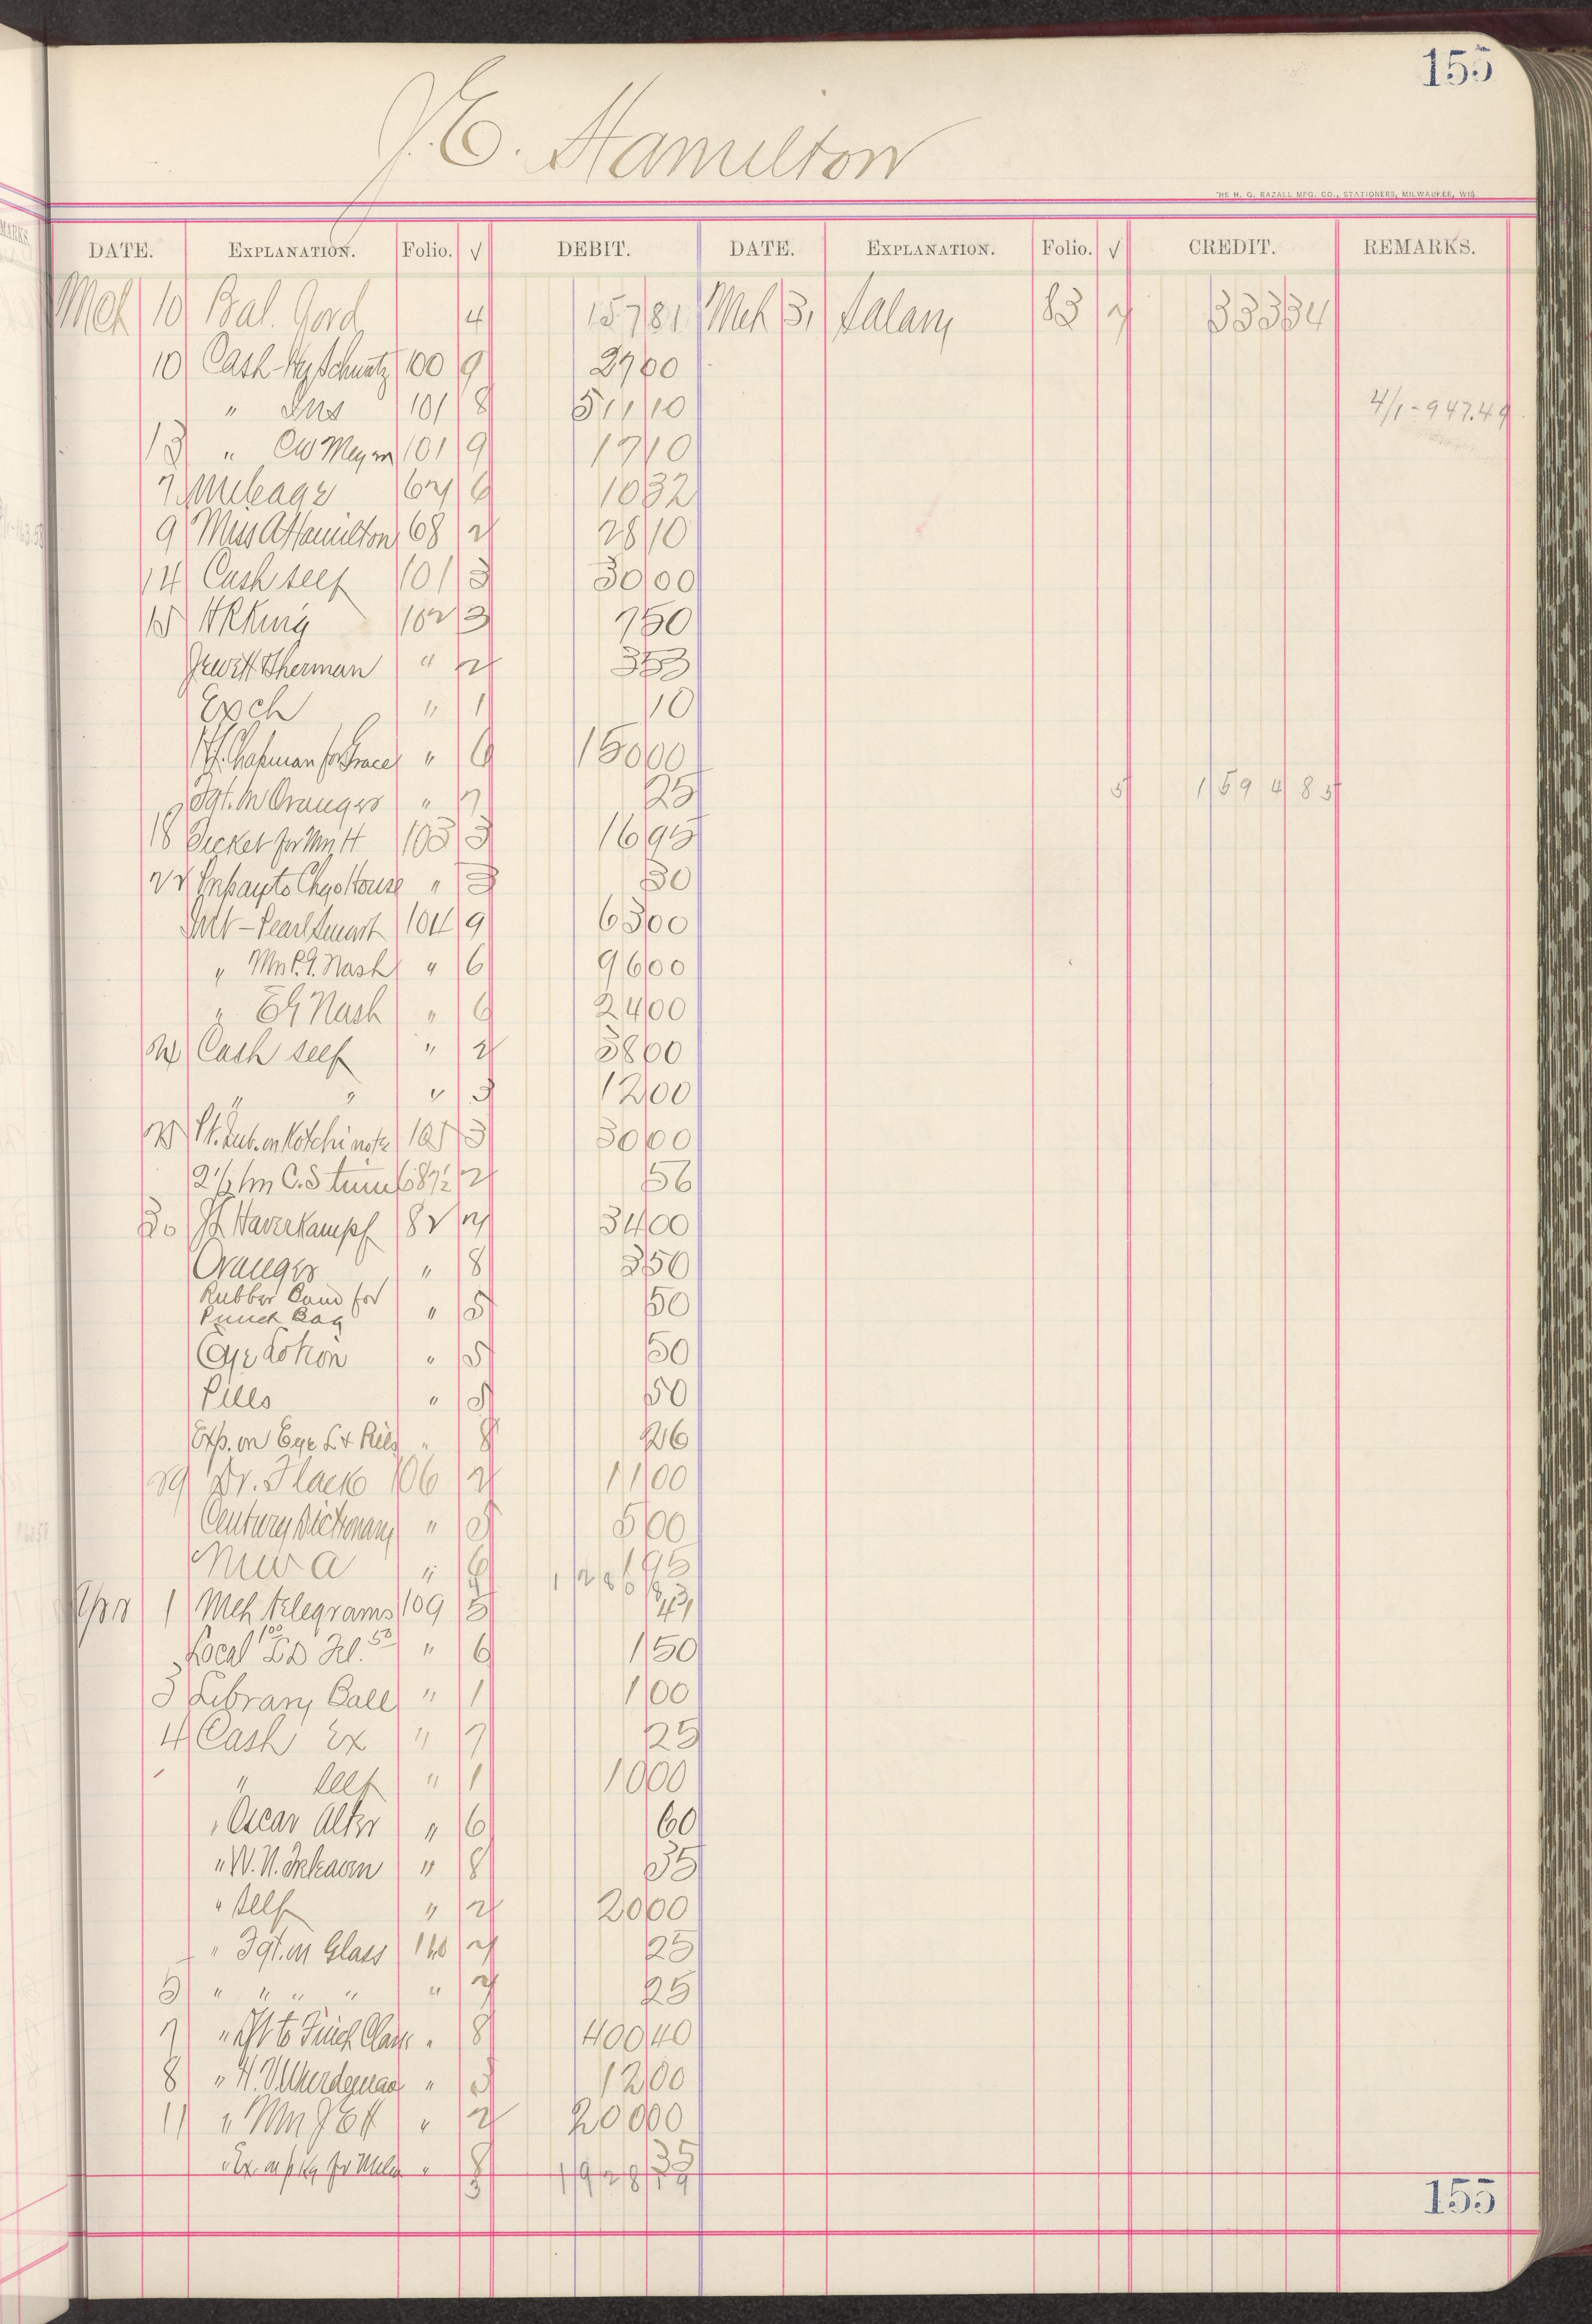 155
J. E. Hamilton
THE H. G. RAZALL MFG. CO., STATIONERS, MILWAUKEE, WIS.
DATE. EXPLANATION. Folio. √ DEBIT. DATE. EXPLANATION. Folio. √ CREDIT. REMARKS.
Mch 10 Bal. Ford 4 157 81 Mch 31 Salary 83 333 34
10 Cash 100 9 29 00
" Ins 101 8 511 10 4/1-947.49
13 " CW Meyer 101 9 17 10
7 Mileage 67 6 10 32
9 Miss A Hamilton 68 2 28 10
14 Cash self 101 3 30 00
15 HR King 102 3 7 50
Jewett Sherman " 2 3 53
Exch " 1 10
Chapman for Grace " 6 150 00
Fgt. on Oranges " 7 25 5 1594 85
18 Ticket for Mrs H 103 3 16 95
22 House " 3 30
Int - Pearl Smart 104 9 63 00
" Mrs P.G. Nash " 6 96 00
" EG Nash " 6 24 00
24 Cash self " 2 38 00
" " " 3 12 00
25 note 105 3 30 00
2 1/2 2 56
30 Haverkampf 82 34 00
Oranges " 8 3 50
Rubber Band for
Punch Bag " 5 50
Eye Lotion " 5 50
Pills " 5 50
Exp. on Eye L & Pills " 8 26
29 Dr. Flack 106 2 11 00
Century Dictionary " 5 5 00
" 6 1 95
Apr 1 Mch telegrams 109 5
Local 100 LD Tel. 50 " 6 1 50
3 Library Ball " 1 1 00
4 Cash Ex " 7 25
" Self " 1 10 00
" Oscar Alter " 6 60
" W. N. " 8 35
" Self " 2 20 00
" Fgt. on Glass 110 25
5 " " " " " 25
7 " to Finch " 8 400 40
8 " H. V. " 5 12 00
11 " Mrs J E H " 2 200 00
" Ex. on pkg for " 8 35
1928 19
155